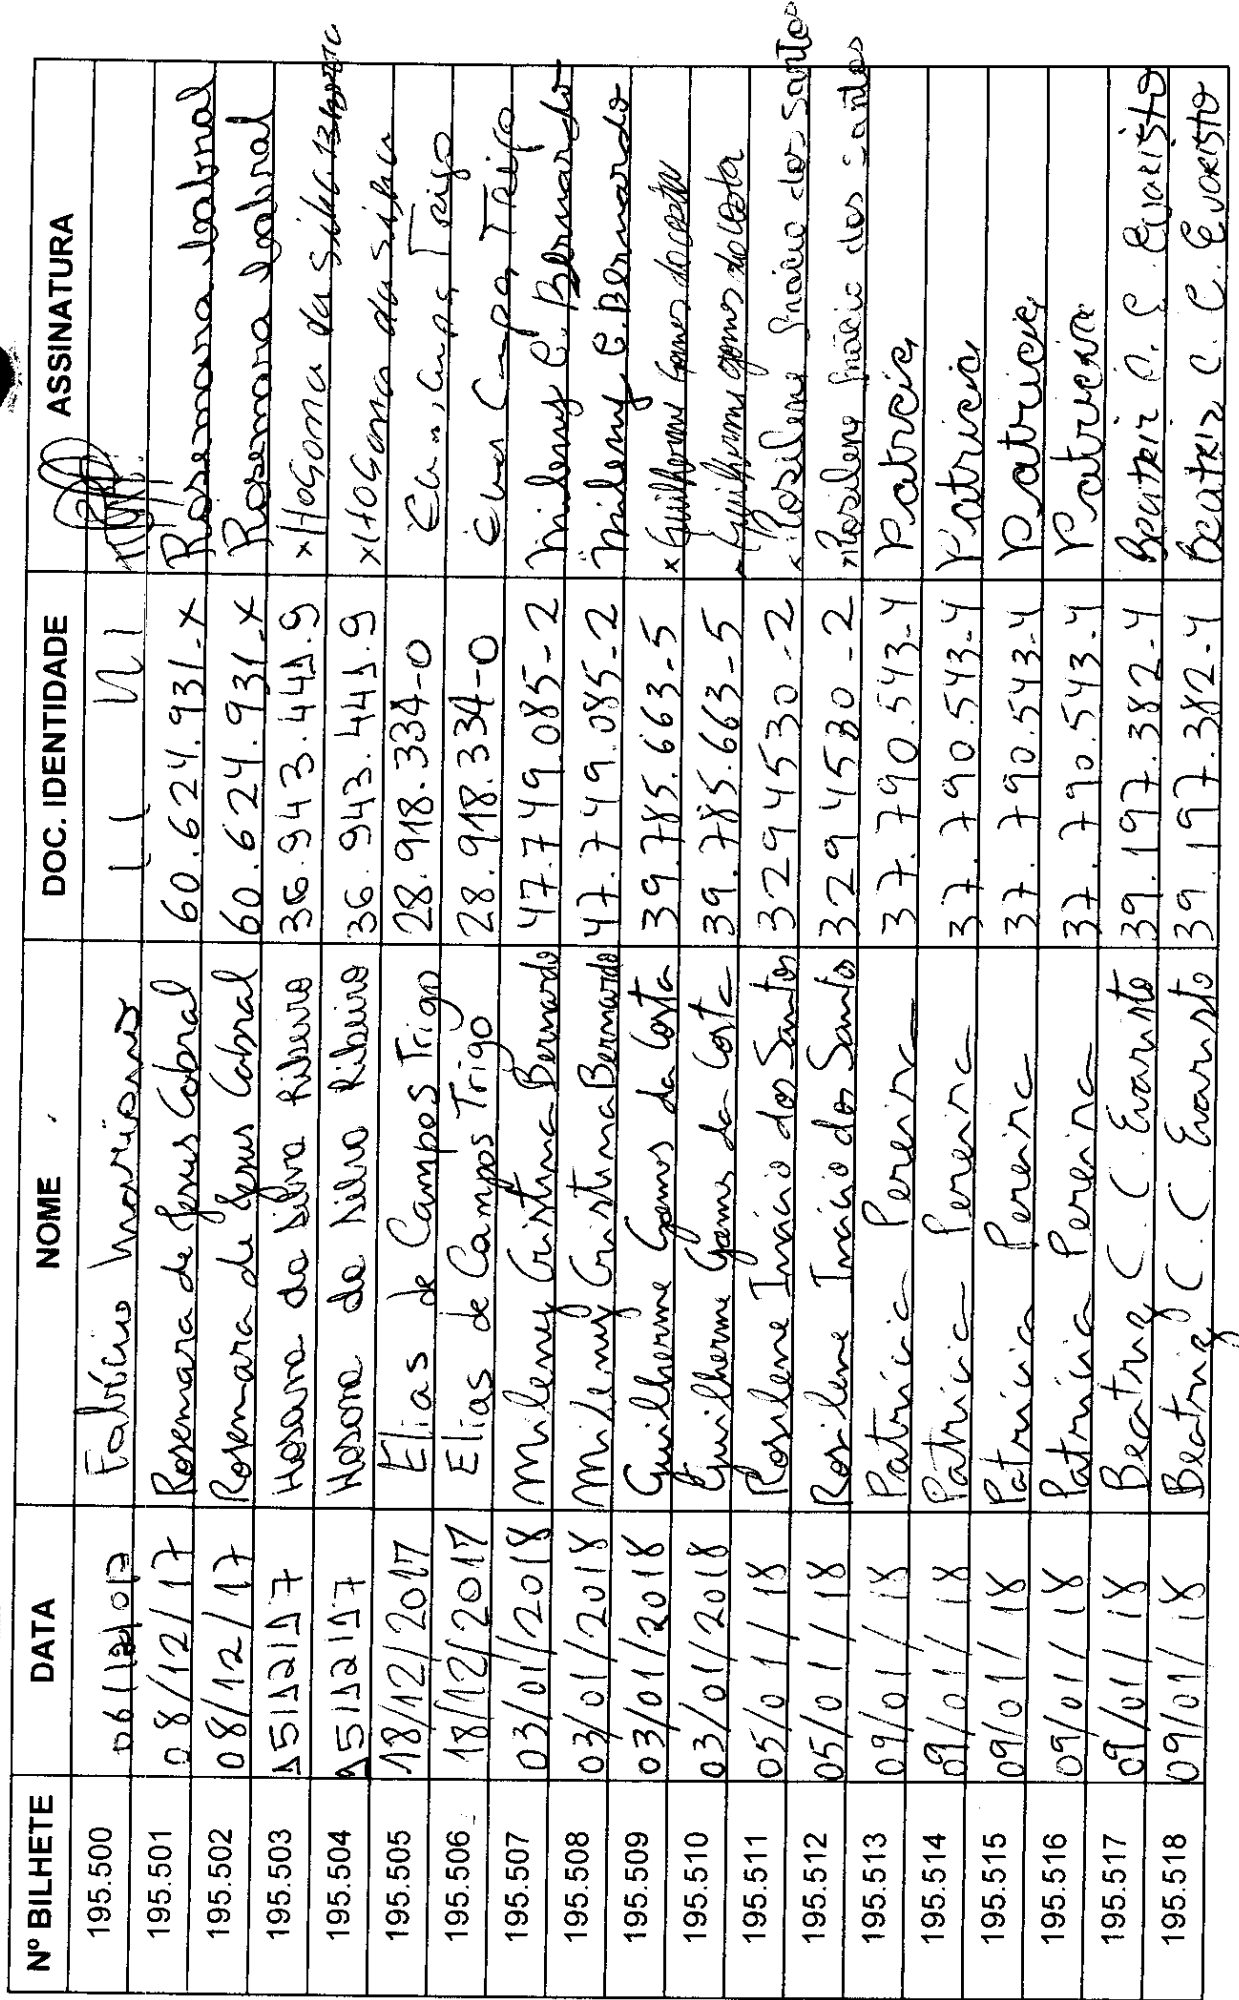 Nº BILHETE DATA NOME DOC. IDENTIDADE ASSINATURA
195.500 Fabrício Mariano 11 11
195.501 08/12/17 Rosemara de Jesus Cabral 60.624.931-X Rosemara Cabral
195.502 08/12/17 Rosemara de Jesus Cabral 60.624.931-X Rosemara Cabral
195.503 15/12/17 Hosana da Silva Ribeiro 36.943.441.9 x Hosana da Silva
195.504 15/12/17 Hosana da Silva Ribeiro 36.943.441.9 x Hosana da Silva
195.505 18/12/2017 Elias de Campos Trigo 28.918.334-0 Elias Campos Trigo
195.506 18/12/2017 Elias de Campos Trigo 28.918.334-0 Elias Campos Trigo
195.507 03/01/2018 Mileny Cristina Bernardo 47.749.085-2 Mileny C. Bernardo
195.508 03/01/2018 Mileny Cristina Bernardo 47.749.085-2 Mileny C. Bernardo
195.509 03/01/2018 Guilherme Gomes da Costa 39.785.663-5 x Guilherme Gomes da Costa
195.510 03/01/2018 Guilherme Gomes da Costa 39.785.663-5 Guilherme Gomes da Costa
195.511 05/01/18 Rosilene Inácio dos Santos 32945530-2 x Rosilene Inácio dos Santos
195.512 05/01/18 Rosilene Inácio dos Santos 32945530-2 x Rosilene Inácio dos Santos
195.513 09/01/18 Patrícia Pereira 37.790.543-4 Patricia
195.514 09/01/18 Patrícia Pereira 37.790.543-4 Patricia
195.515 09/01/18 Patrícia Pereira 37.790.543-4 Patricia
195.516 09/01/18 Patrícia Pereira 37.790.543-4 Patricia
195.517 09/01/18 Beatriz C. C. Evaristo 39.197.382-4 Beatriz C. C. Evaristo
195.518 09/01/18 Beatriz C. C. Evaristo 39.197.382-4 Beatriz C. C. Evaristo